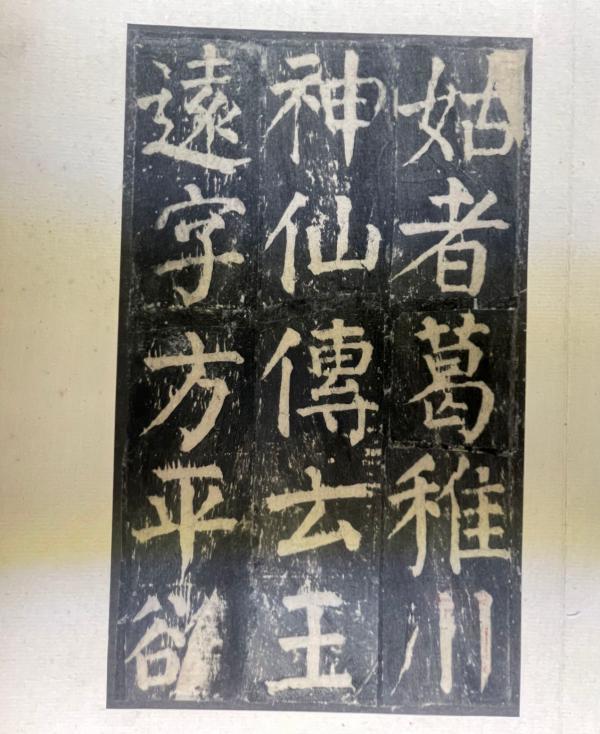 姑者葛稚川
神仙傳云王
遠字方平欲